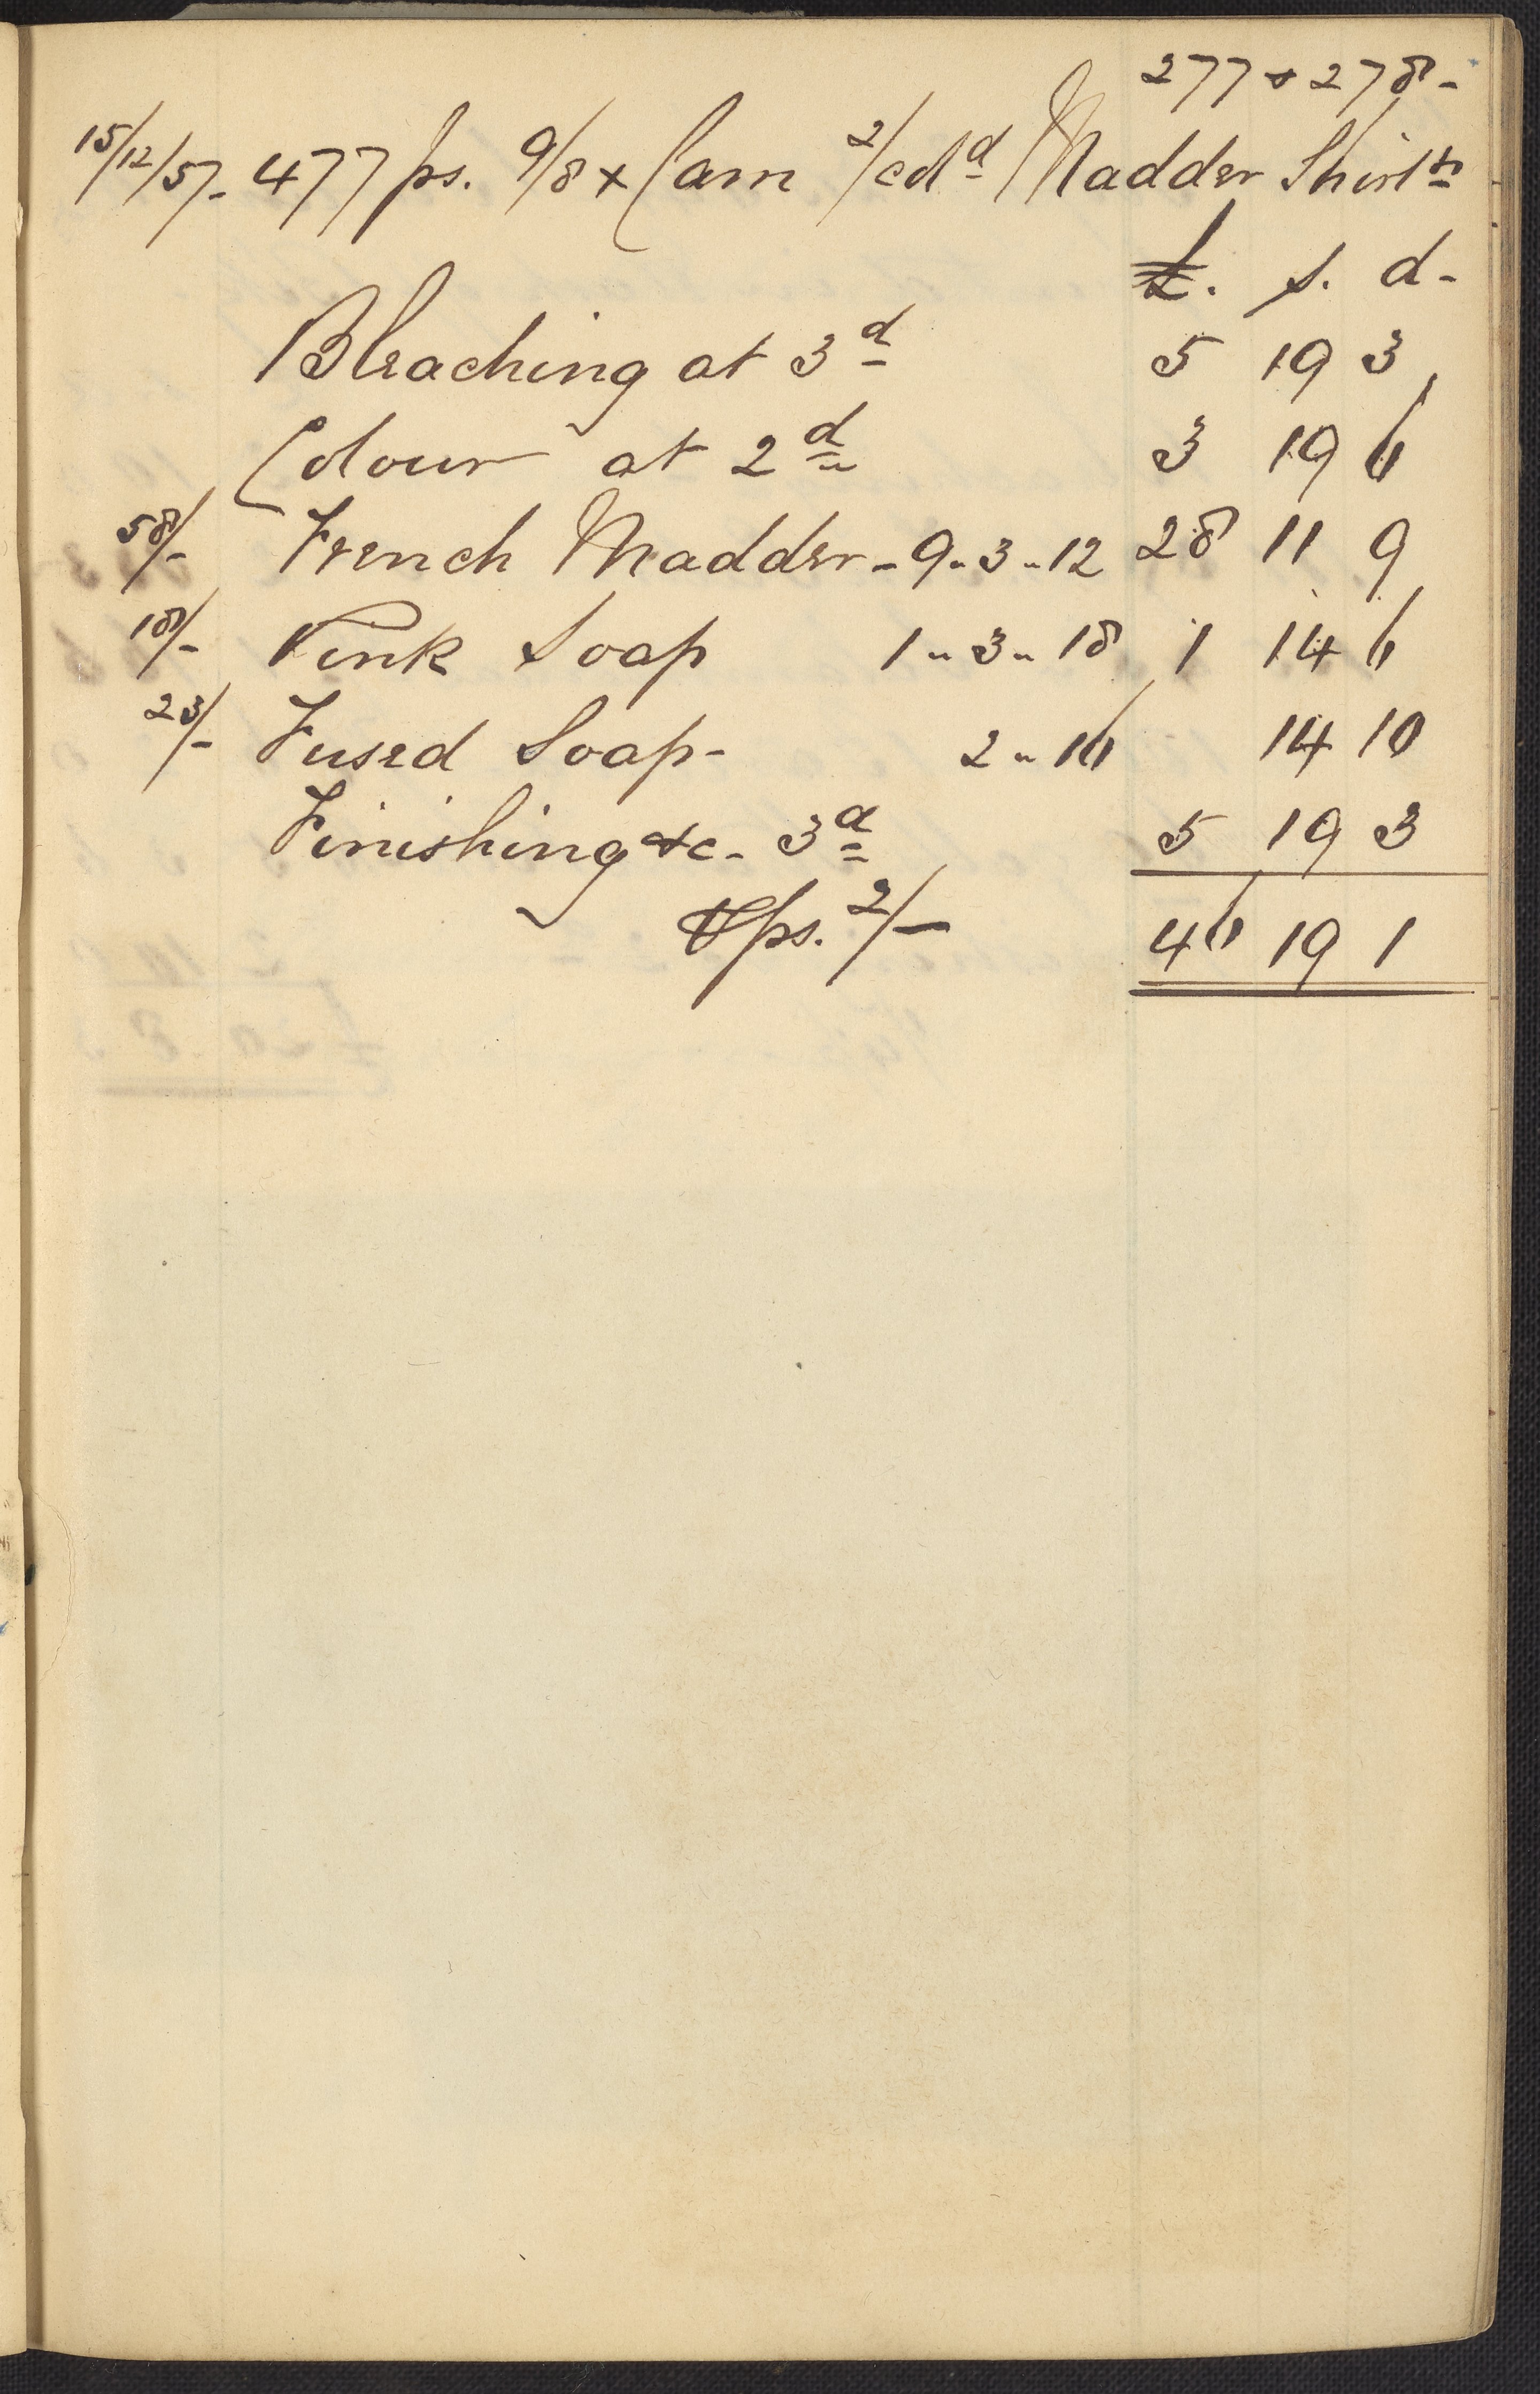 277 & 278-
15/12/57. 477 ps. 9/8 x Cam 2/cdd Madder Shirtn
£. s. d-
Bleaching at 3d 5 19 3
Colour at 2d 3 19 6
58/- French Madder - 9 " 3 " 12 28 11 9
18/- Pink Soap 1 " 3 " 18 1 14 6
23/- Fused Soap - 2 " 16 14 10
Finishing &c - 3d 5 19 3
⅌ ps. 2/- 46 19 1